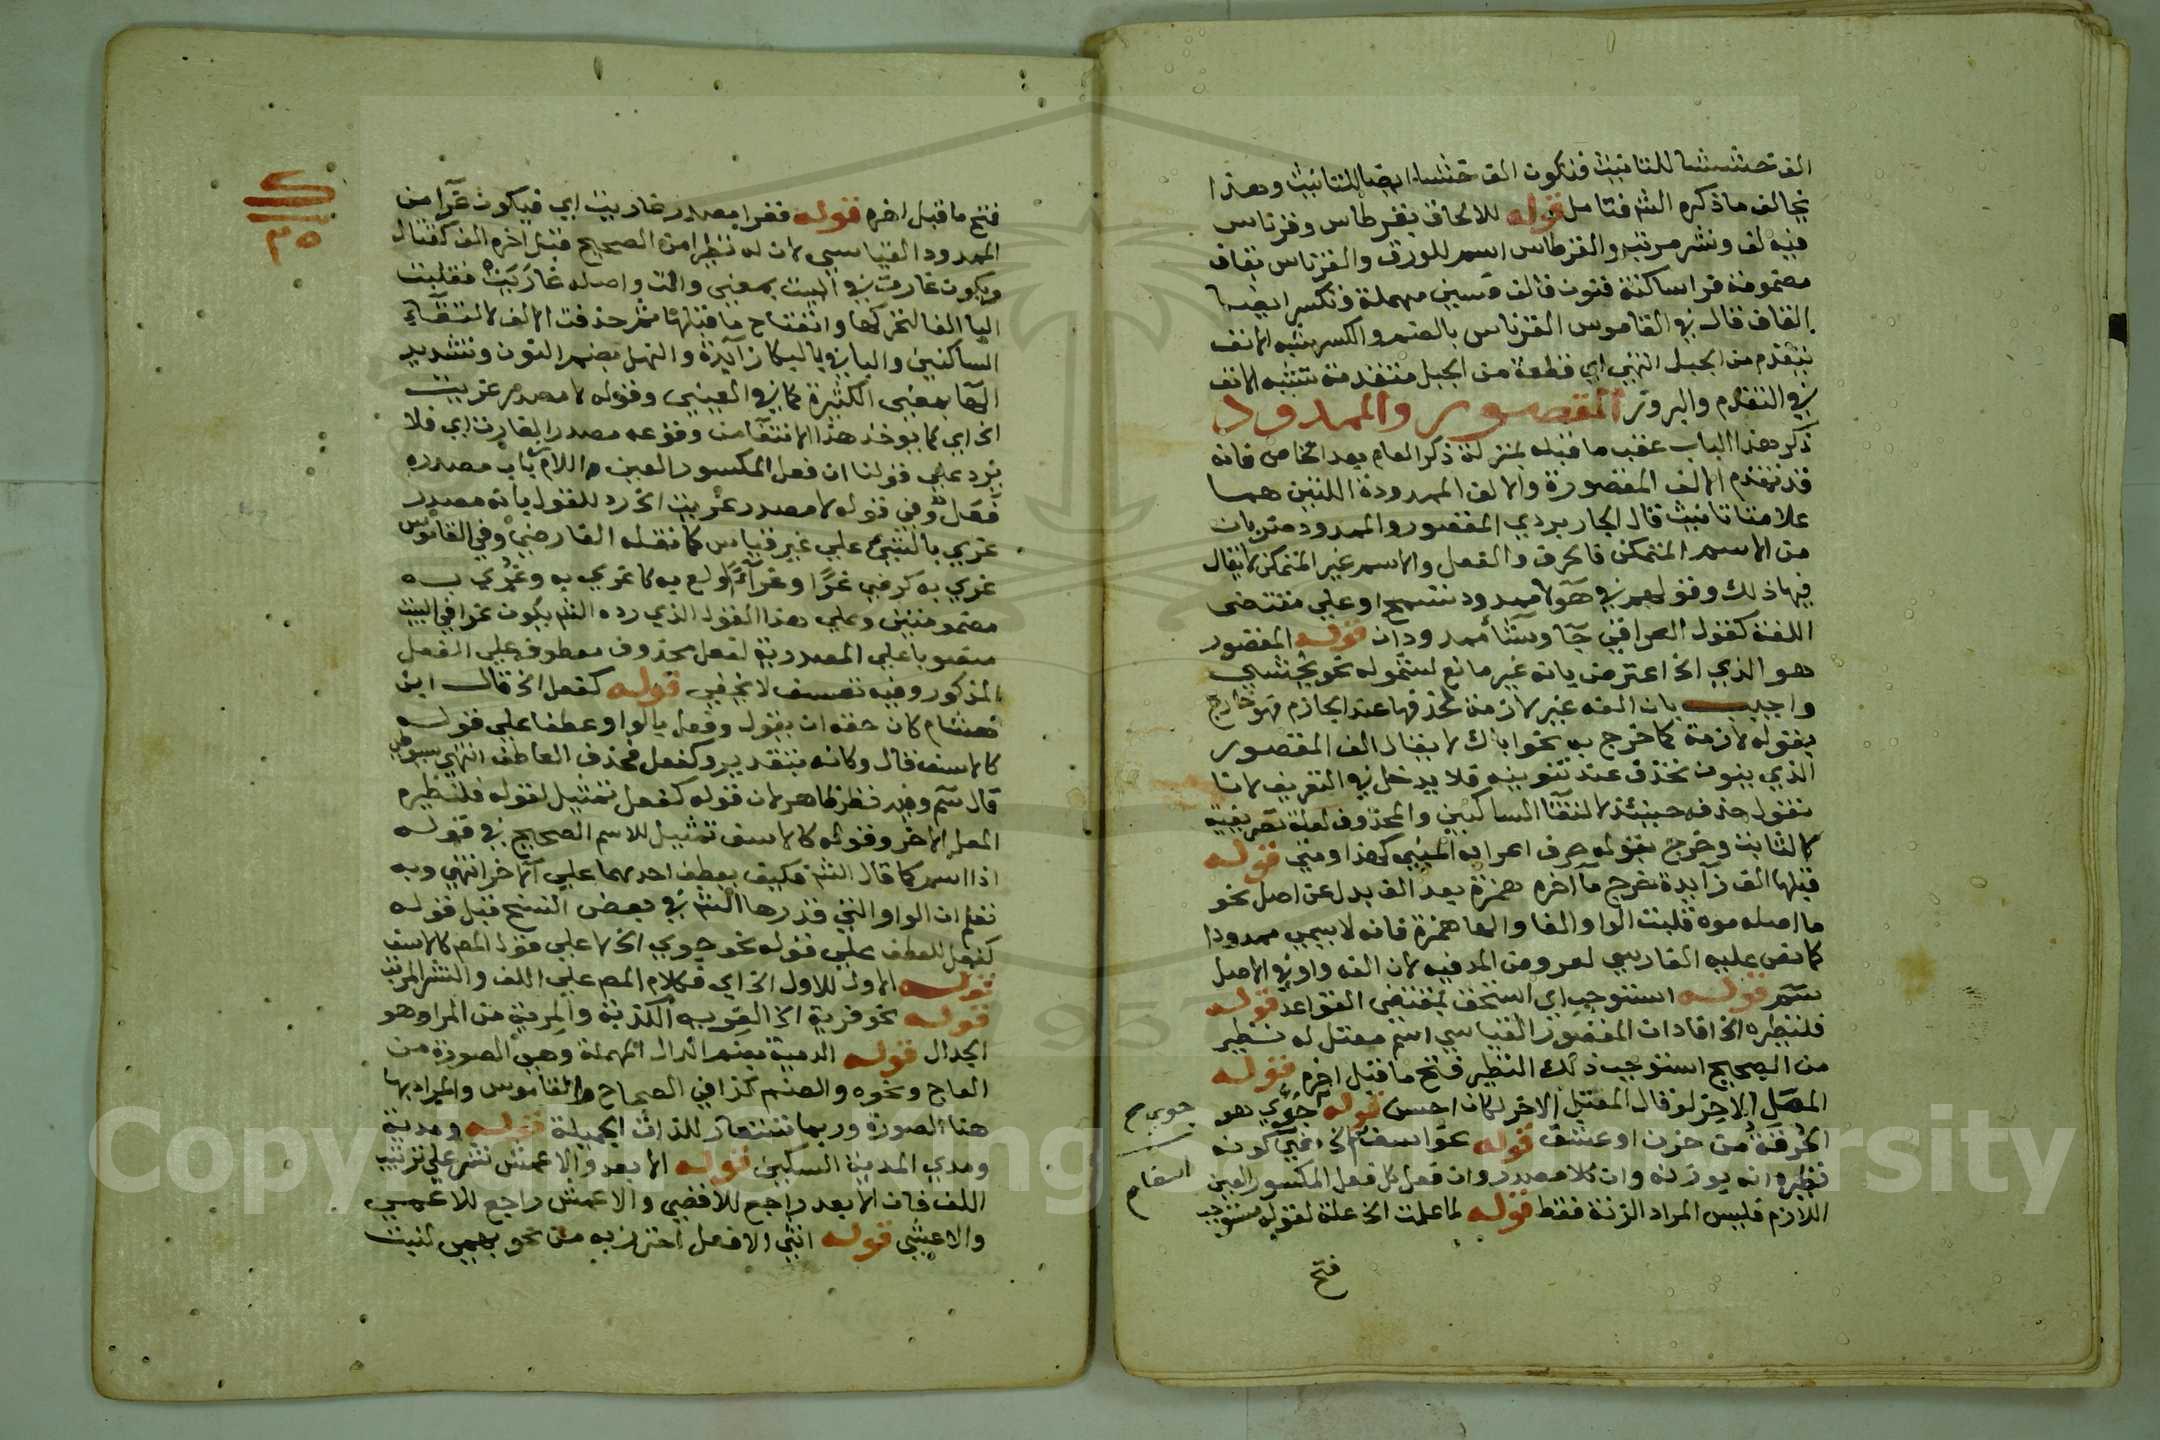 الف خششا للتانيث فتكون الف خششاء ايضا للتانيث وهذا
يخالف ما ذكره الش فتامل قوله للالحاق بقرطاس وقرناس
فيه لف ونشر مرتب والقرطاس اسم للورق والقرناس بقاف
مضمومة فرا ساكنة فنون فالف فسين مهملة وتكسر ايضا
القاف قال في القاموس القرناس بالضم والكسر شبه الانف
يتقدم من الجبل انتهي اي قطعة من الجبل متقدمة تشبه الانف
في التقدم والبروز المقصور والممدود
ذكر هذا الباب عقب ما قبله بمنزلة ذكر العام بعد الخاص فانه
قد تقدم الالف المقصورة والالف الممدودة اللتين هما
علامتا تانيث قال الجاربردي المقصور والممدود ضربان
من الاسم المتمكن فالحرف والفعل والاسم غير المتمكن لا يقال
فيها ذلك وقولهم في هؤلا ممدود تسمح او علي مقتضى
اللغة كقول القراء في جآ وشآ ممدودان قوله المقصور
هو الذي الخ اعترض بانه غير مانع لشموله نحو يخشي
واجيب بان الفه غير لازمة لحذفها عند الجازم فهو خارج
بقوله لازمة كما خرج به نحو اباك لا يقال الف المقصور
الذي ينون تحذف عند تنوينه فلا يدخل في التعريف لانا
نقول حذفه حينئذ لالتقآ الساكنين والمحذوف لعلة تصريفية
كالثابت وخرج بقوله حرف اعرابه المبني كهذا ومتي قوله
قبلها الف زآيدة خرج مآ اخره همزة بعد الف بدل عن اصل نحو
ما اصله موه قلبت الواو الفا والها همزة فانه لا يسمي ممدودا
كما نص عليه الفارسي لعروض المد فيه لان الفه واو في الاصل
سم قوله استوجب اي استحق بمقتضى القواعد قوله
فلنظيره الخ افاد ان المقصور القياسي اسم معتل له نظير
من الصحيح استوجب ذلك النظير فتح ما قبل اخره قوله
المعل الاخر لو قال المعتل الاخر لكان احسن قوله جوي هو
الحرقة من حزن او عشق قوله عوا سف الخ في كونه
نظيره انه بوزنه وان كلا مصدر وان فعل كل فعل المكسور العين
اللازم فليس المراد الزنة فقط قوله لما علمت الخ علة لقوله مستوجب
فتح
جوي م
اسف م
٣٥
فتح ما قبل اخره قوله فغرا مصدر غاريت اي فيكون غرآ من
الممدود القياسي لان له نظيرا من الصحيح قبل اخره الف كقتال
ويكون غاريت في البيت بمعني والت واصله غاريت فقلبت
اليا الفا لتحركها وانفتاح ما قبلها ثم حذفت الالف لالتقآء
الساكنين واليا في باليكا زآيدة والنهل بضم النون وتشديد
الها بمعني الكثيرة كما في العيني وقوله لا مصدر غريت
الخ اي كما يوخذ هذا الانتفآ من وقوعه مصدرا لغاريت اي فلا
يرد علي قولنا ان فعل المكسور العين واللام باب مصدره
فعل وفي قوله لا مصدر غريت الخ رد للقول بانه مصدر
غري بالشيء علي غير قياس كما نقله الفارضي وفي القاموس
غري به كرضي غرًا وغرآءً اولع به كاغري به وغري به
مضمومتين وعلي هذا القول الذي رده الش يكون غرا في البيت
منصوبا علي المصدرية لفعل محذوف معطوف علي الفعل
المذكور وفيه تعسف لا يخفي قوله كفعل الخ قال ابن
هشام كان حقه ان يقول وفعل بالواو عطفا علي قوله
كالاسف قال وكانه بتقدير وكفعل فحذف العاطف انتهي سيوطي
قال سم وفيه نظر ظاهر لان قوله كفعل تمثيل لقوله فلنظيره
المعل الاخر وقوله كالاسف تمثيل للاسم الصحيح في قوله
اذا اسم كما قال الش فكيف يعطف احدهما علي الاخر انتهي وبه
تعلم ان الواو التي قدرها الش في بعض النسخ قبل قوله
كفعل للعطف علي قوله نحو جوي الخ لا علي قول المص كالاسف
قوله الاول للاول الخ اي فكلام المص علي اللف والنشر المرتب
قوله نحو فرية الخ الفرية الكذبة والمرية من المرا وهو
الجدال قوله الدمية بضم الدال المهملة وهي الصورة من
العاج ونحوه والصنم كذا في الصحاح والقاموس والمراد بها
هنا الصورة وربما تستعار للذات الجميلة قوله ومدية
ومدي المدية السكين قوله الابعد والاعمش نشر علي ترتيب
اللف فان الابعد راجع للاقصي والاعمش راجع للاعمي
والاعشي قوله انثي الافعل احترز به من نحو بهمي لنبت